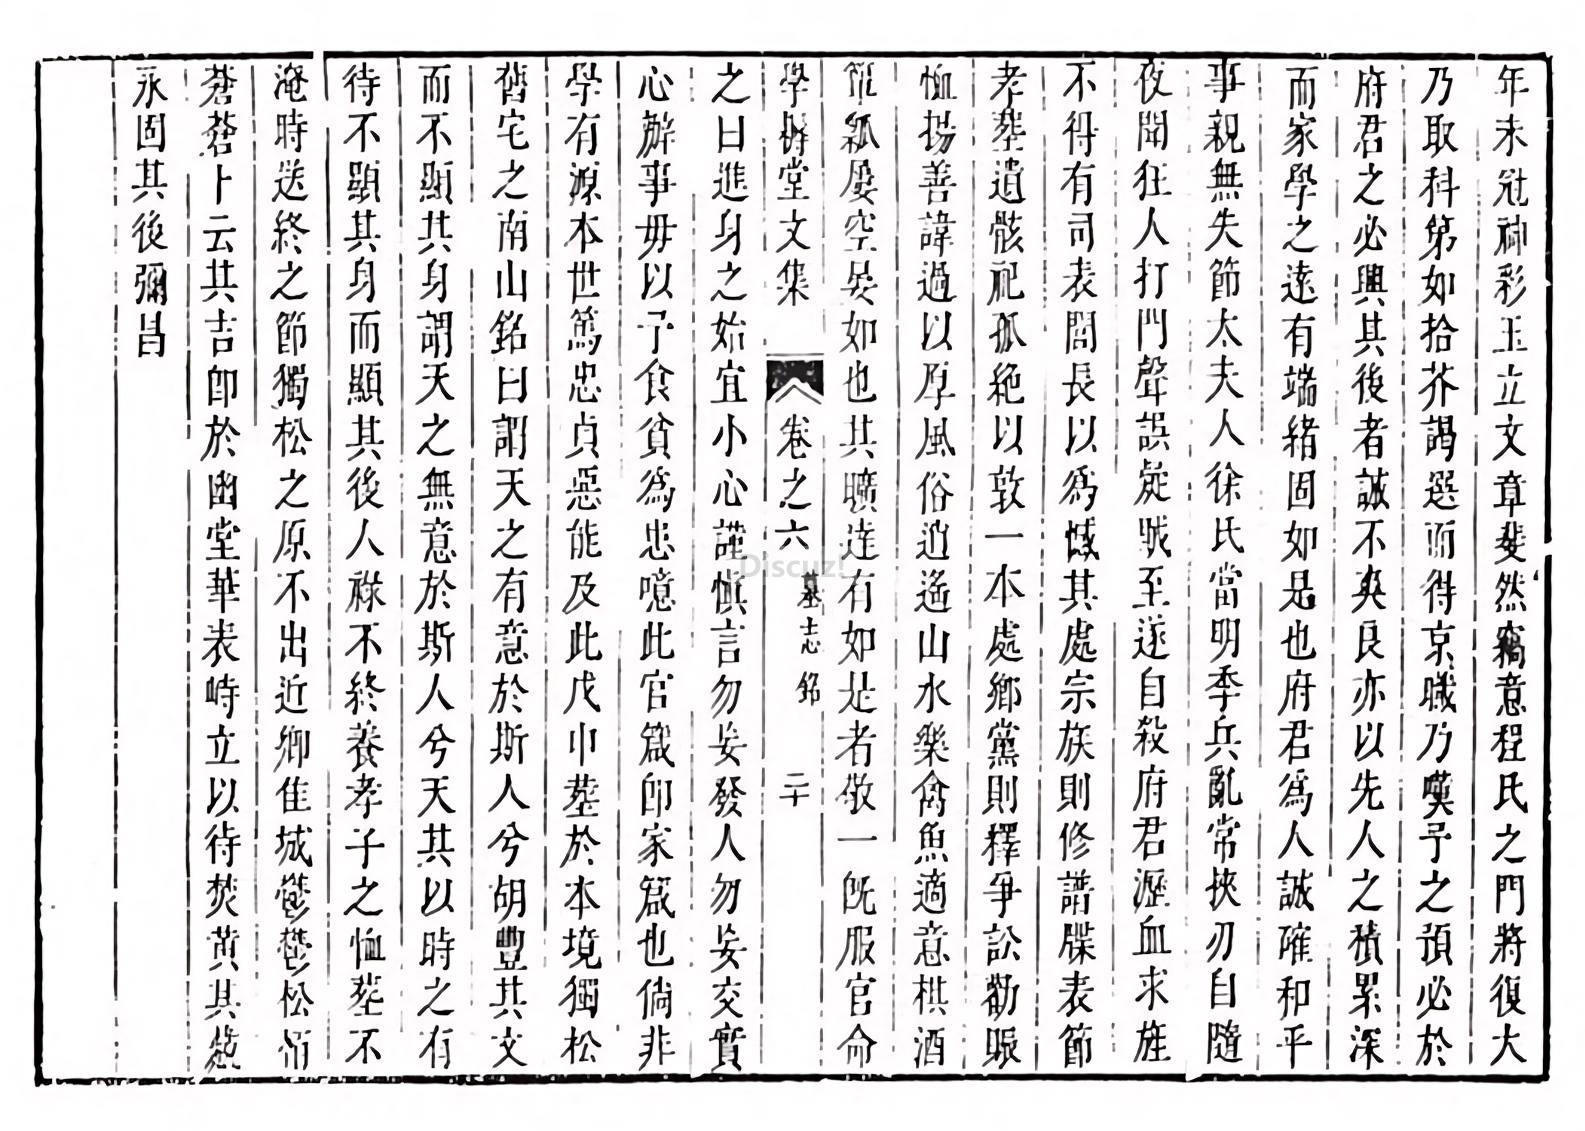 年未冠神彩玉立文章斐然竊意程氏之門將復大
乃取科第如拾芥謁選而得京職乃嘆予之預必於
府君之必興其後者誠不爽良亦以先人之積累深
而家學之遠有端緒固如是也府君爲人誠確和平
事親無失節太夫人徐氏當明季兵亂常挾刃自隨
夜聞狂人打門聲誤疑賊至遂自殺府君瀝血求旌
不得有司表閭長以爲憾其處宗族則修譜牒表節
孝塟遺骸祀孤絶以敦一本處鄉黨則釋爭訟勸賑
恤揚善諱過以厚風俗逍遙山水樂禽魚適意棋酒
簞瓢屢空晏如也其曠達有如是者敬一旣服官命
學稼堂文集 卷之六 墓志銘 二十
之曰進身之始宜小心謹愼言勿妄發人勿妄交實
心辦事毋以予食貧爲忠噫此官箴卽家箴也倘非
學有源本世篤忠貞惡能及此戊申塟於本境獨松
舊宅之南山銘曰謂天之有意於斯人兮胡豐其文
而不顯其身謂天之無意於斯人兮天其以時之有
待不顯其身而顯其後人祿不終養孝子之恤塟不
淹時送終之節獨松之原不出近鄉佳城鬱鬱松楸
蒼蒼卜云其吉卽於幽堂華表峙立以待焚黃其
永固其後彌昌
Discuz!